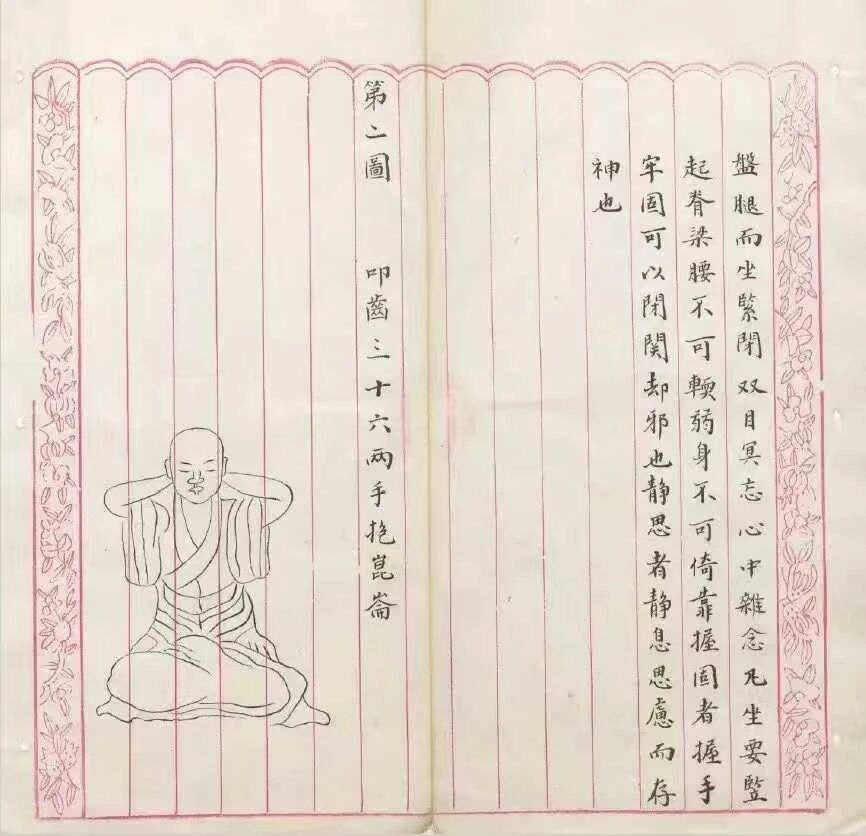 盤腿而坐緊閉双目冥忘心中雜念凡坐要竪
起脊梁腰不可輭弱身不可倚靠握固者握手
牢固可以閉関却邪也静思者静息思慮而存
神也
第二圖　叩齒三十六兩手抱崑崙